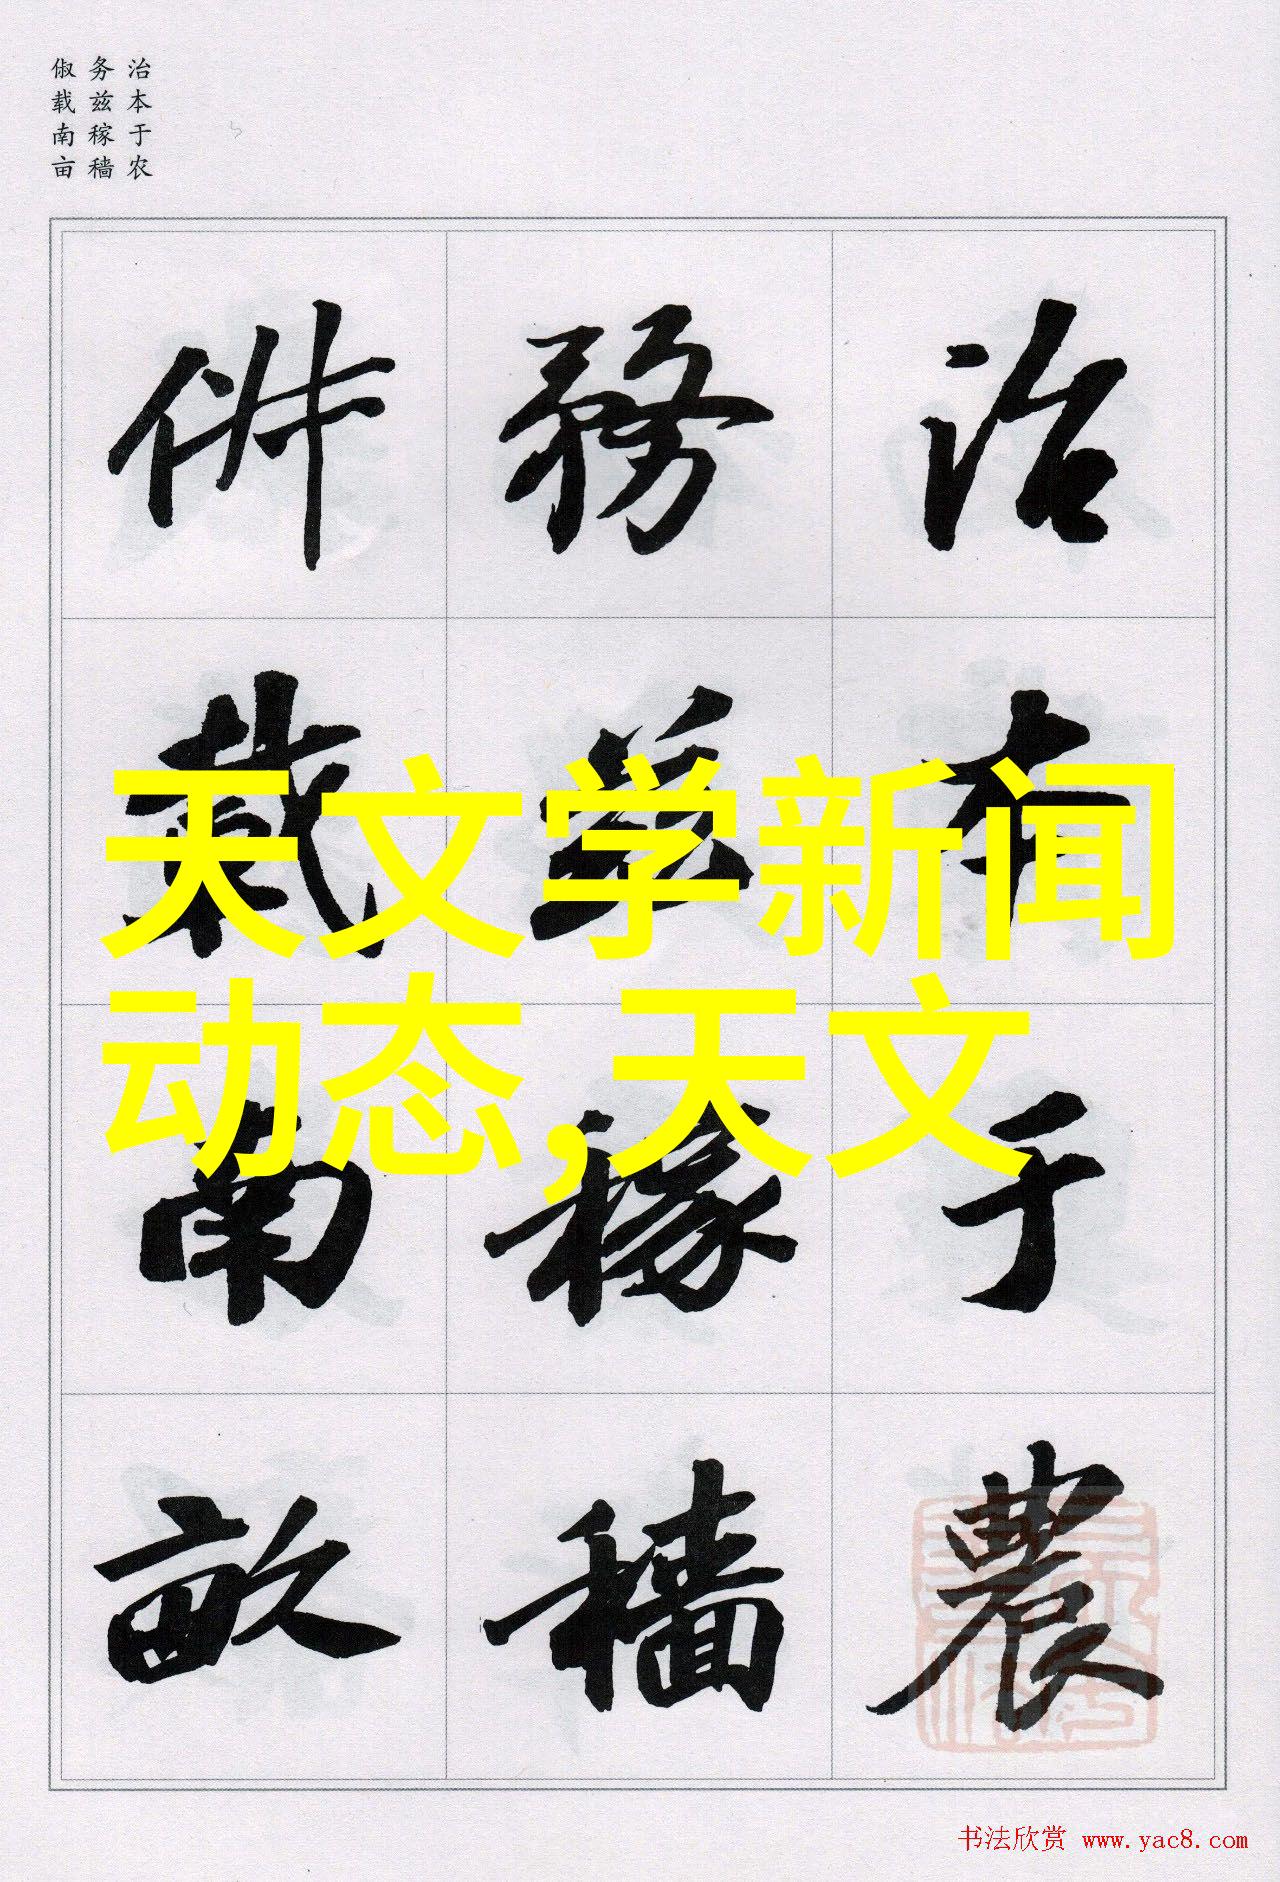 治本于农
务兹稼穑
俶载南亩
治本于農
務茲稼穡
俶载南畝
天文学新闻
动态,天文
书法欣赏 www.yac8.com